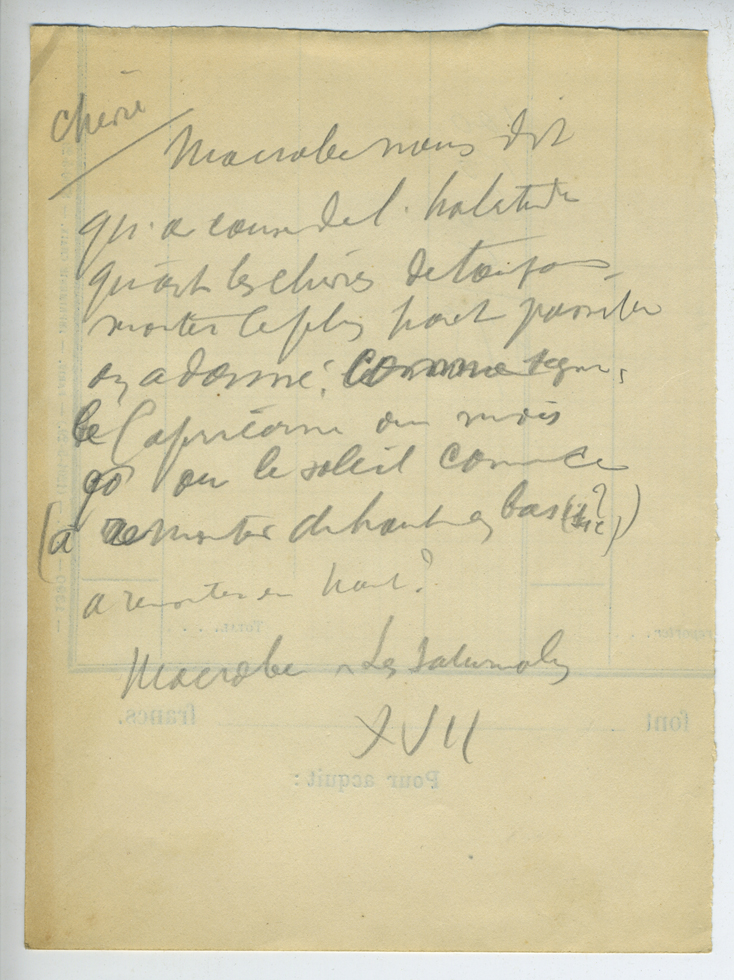 chèvre
Macrobe nous dit
qu'a cause de l'habitude
qu'ont les chèvres de toujours
monter le plus haut possible
on a donné, comme signe,
le Capricorne au mois
où le soleil commence
(à remonter de haut en bas (sic?))
a remonter en haut?
Macrobe - Les Saturnales
XVII
TOTAL
font francs.
Pour acquit :